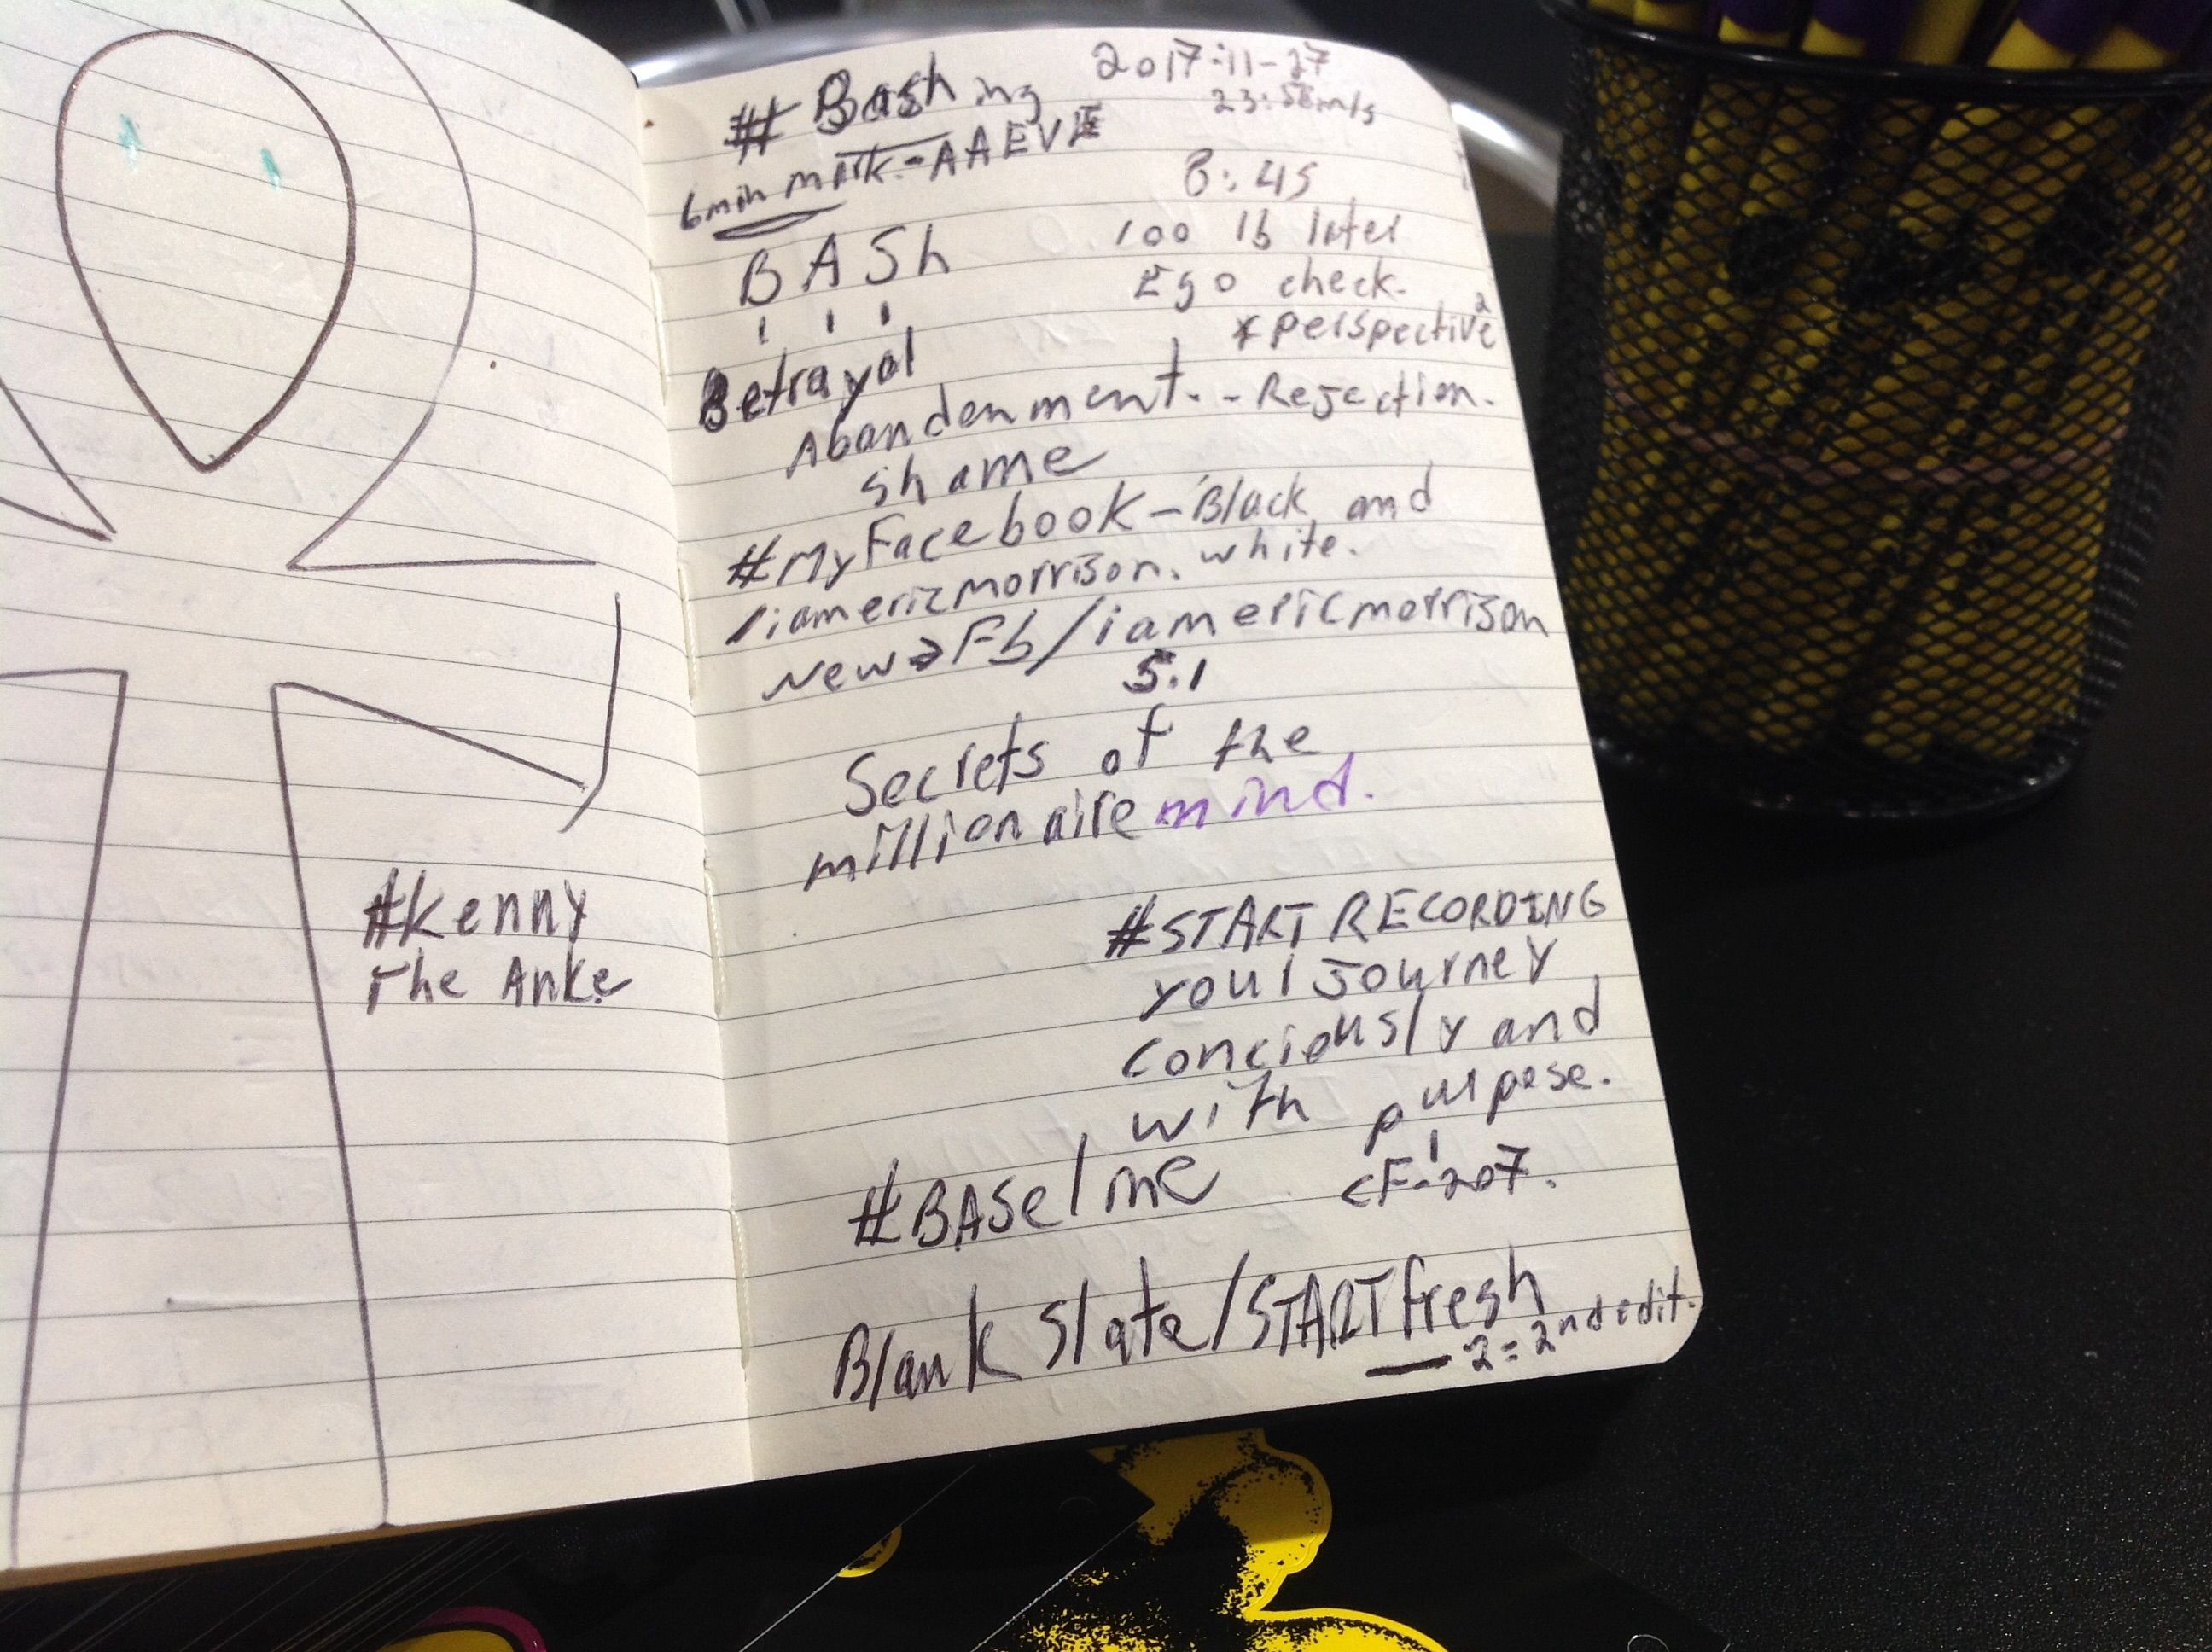 #Kenny
The Anke
#Bashing
2017-11-27
6min mark.-AAEVE
8:45
100 lb later
Ego check.
*perspective
2
BASh
Betrayal
Abandenment.-Rejection.
shame
#MyFacebook-Black and
white.
/iamericmorrison.
New→Fb/iamericmorrison
5.1
Secrets of the
millionaire mind.
#START RECORDING
your Journey
conciously and
with purpose.
#BASelme
CF-207.
Blank Slate/START fresh
2=2nd edit.